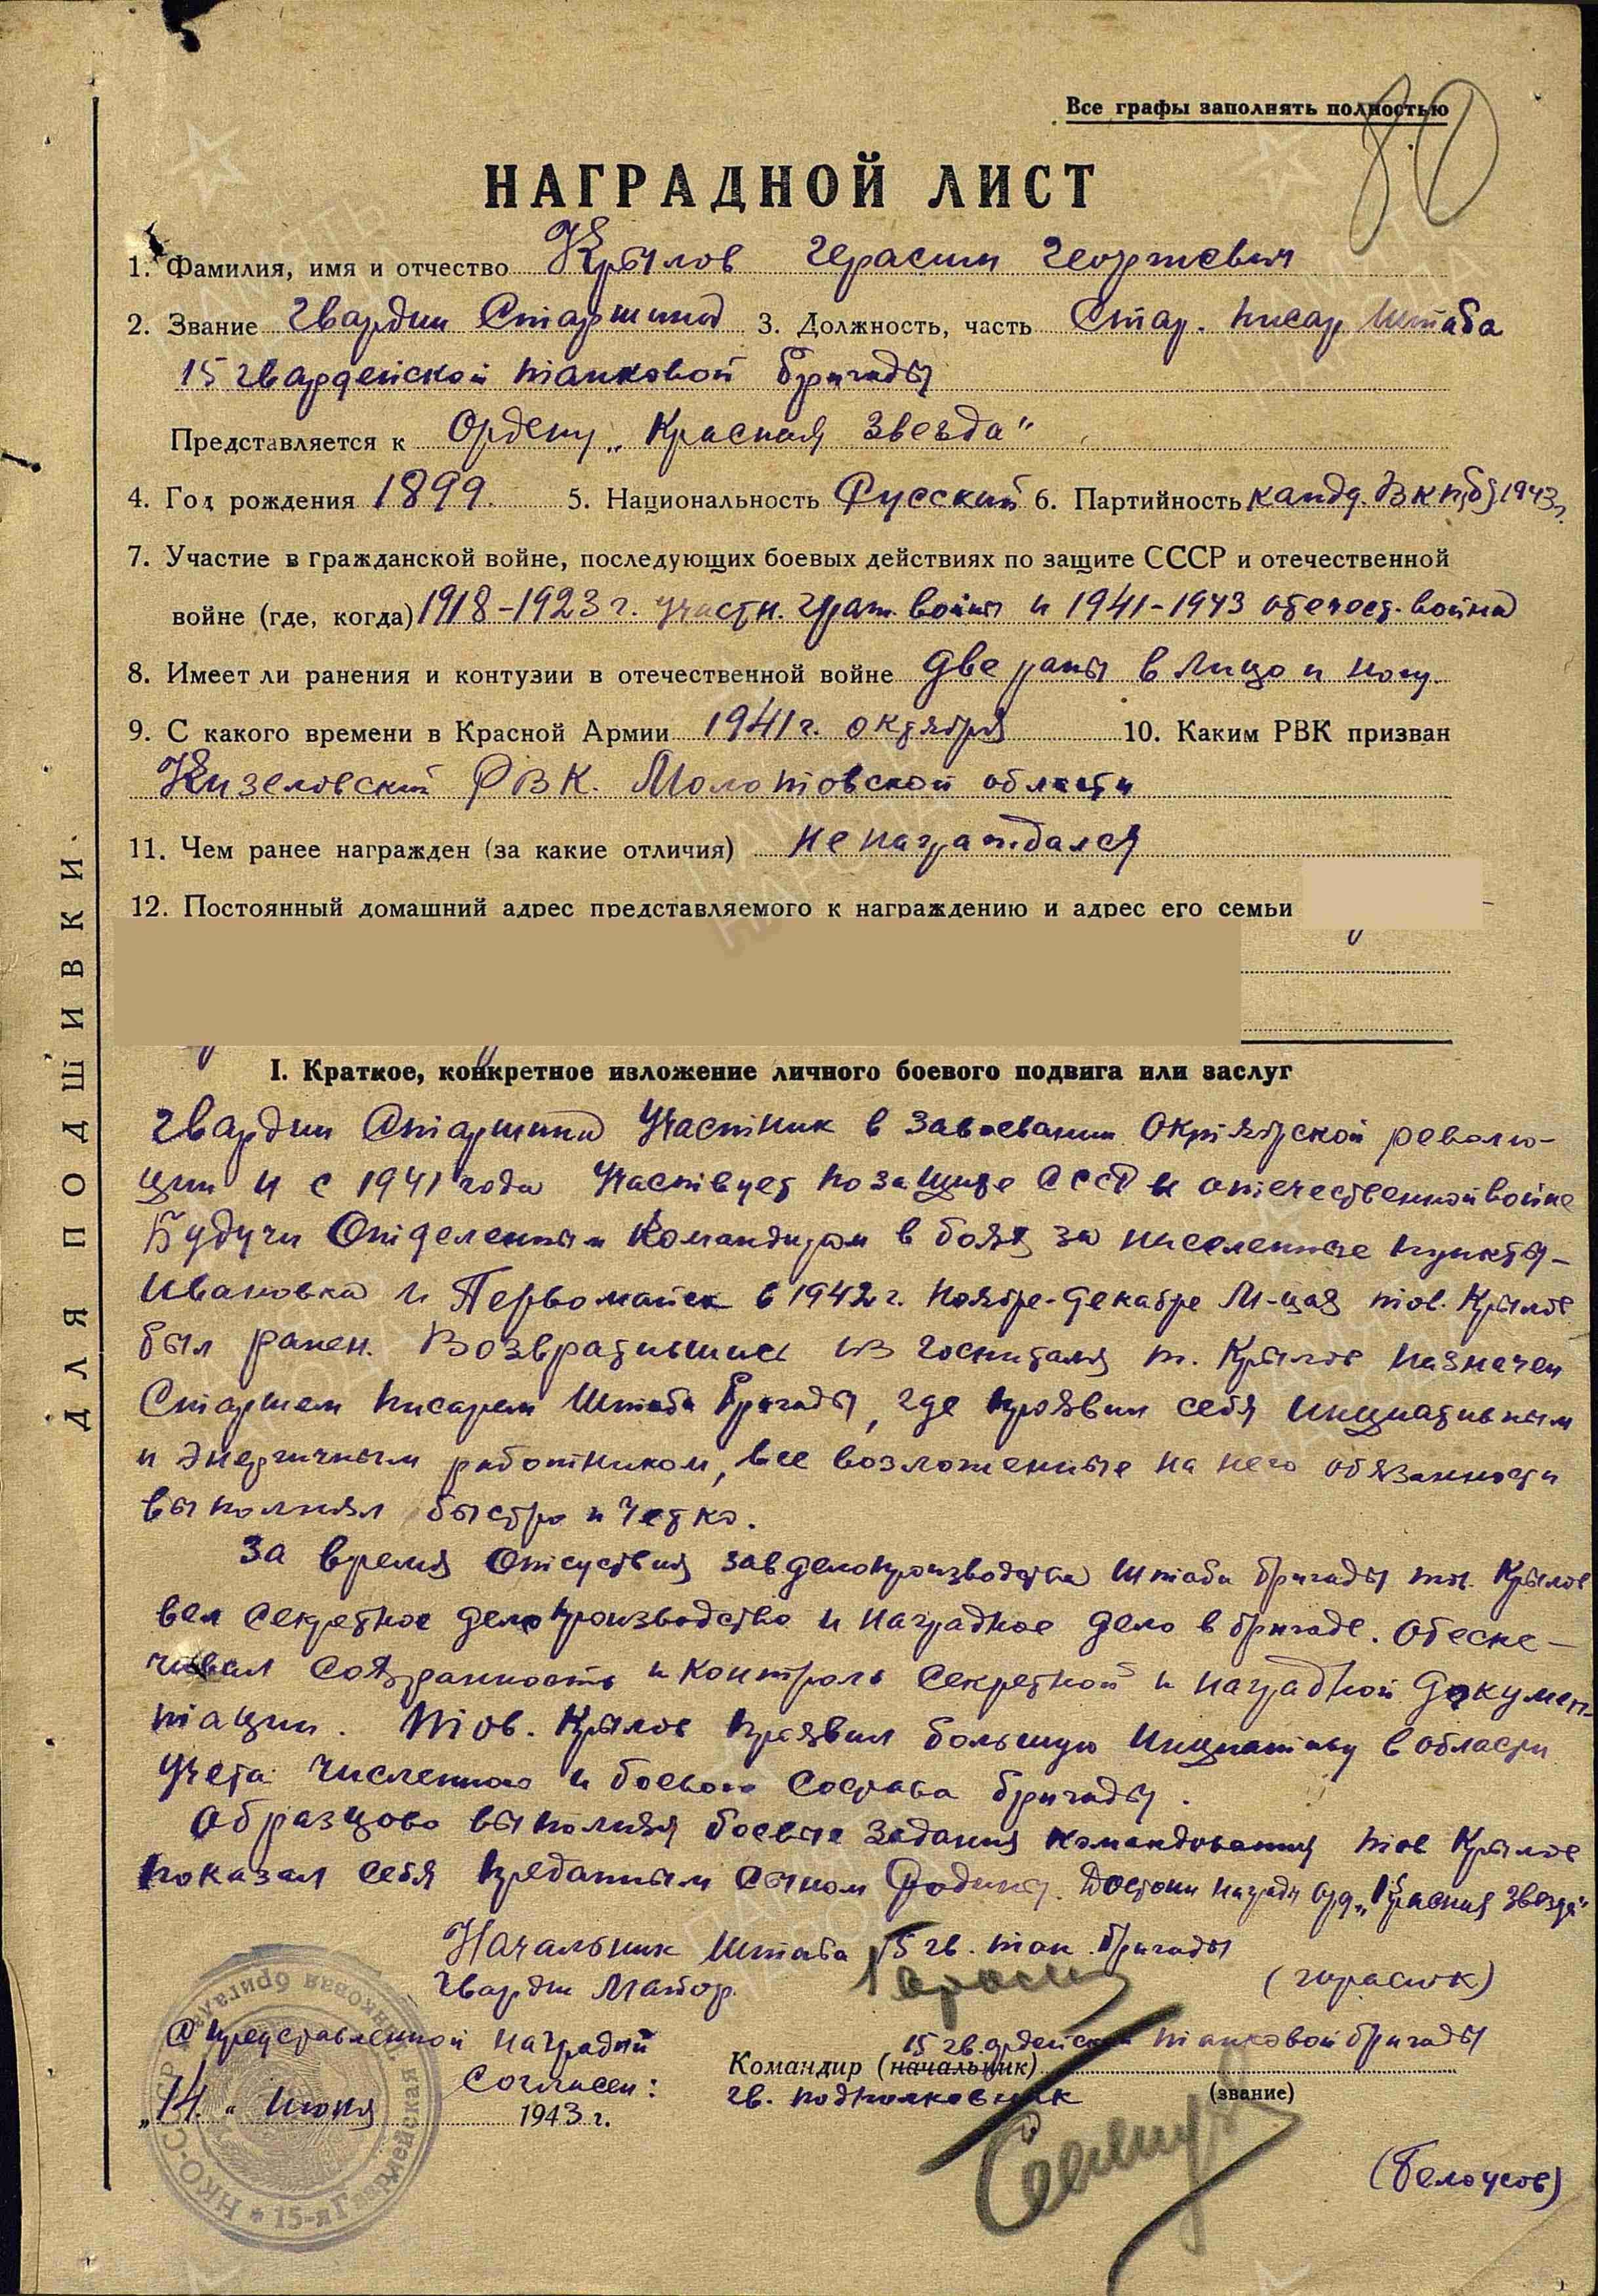 Все графы заполнять полностью
80
НАГРАДНОЙ ЛИСТ
1. Фамилия, имя и отчество Крылов Герасим Георгиевич
2. Звание Гвардии Старшина 3. Должность, часть Стар. писар штаба
15 гвардейской танковой бригады
Представляется к Ордену „Красная Звезда"
4. Год рождения 1899. 5. Национальность Русский 6. Партийность канд. ВКП(б) 1943г.
7. Участие в гражданской войне, последующих боевых действиях по защите СССР и отечественной
войне (где, когда) 1918-1923 г. участн. граж. войны и 1941-1943 отечест. война
8. Имеет ли ранения и контузии в отечественной войне две раны в лицо и ногу.
9. С какого времени в Красной Армии 1941 г. октября 10. Каким РВК призван
Кизеловский РВК. Молотовской области
11. Чем ранее награжден (за какие отличия) не награждался
12. Постоянный домашний адрес представляемого к награждению и адрес его семьи
ДЛЯ ПОДШИВКИ.
I. Краткое, конкретное изложение личного боевого подвига или заслуг
Гвардии Старшина Участник в завоевании Октябрьской револю-
ции и с 1941 года Участвует по защите СССР в отечественной войне
Будучи Отделенным Командиром в боях за населенные пункты-
Ивановка и Первомайск в 1942 г. Ноябре-декабре м-цах тов. Крылов
был ранен. Возвратившись из госпиталя т. Крылов назначен
Старшем писарем штаба бригады, где проявил себя инициативным
и энергичным работником, все возложенные на него обязанности
выполнял быстро и четко.
За время Отсуствия завделопроизводства штаба бригады тов. Крылов
вел секретное делопроизводство и наградное дело в бригаде. Обеспе-
чивал сохранность и контроль секретной и наградной докумен-
тации. Тов. Крылов проявил большую инициативу в области
учета численного и боевого состава бригады.
Образцово выполняя боевые задания командования тов Крылов
показал себя преданным сыном Родины. Достоин награды орд. „Красная Звезда"
Начальник штаба 15 гв. тан. бригады
Гвардии Майор. (Гарасюк)
С представленной наградой
Согласен:
15 гвардейской танковой бригады
Командир (начальник)
гв. подполковник (звание)
„14" Июня 1943 г.
(Белоусов)
НКО-СССР * 15-я Гвардейская Танковая бригада
ПАМЯТЬ НАРОДА